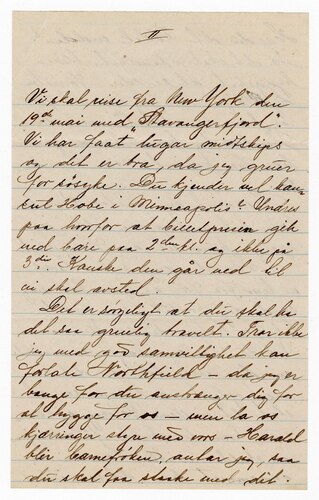 II
Vi skal reise fra New York den
19de mai med "Stavangerfjord".
Vi har faat lugar midtskips
og det er bra, da jeg gruer
for sösyke. Du kjender vel kon-
sul Hobe i Minneapolis? Undres
paa hvorfor at billetprisen gik
ned bare paa 2den kl. og ikke på
3die. Kanske den går ned til
vi skal avsted.
Det er sørgeligt at du skal ha
det saa gruelig travelt. Tror ikke
jeg med god samvittighet kan
forlate Northfield – da jeg er
bange for du anstrenger dig for
at hygge for os – men la os
kjærringer styre med vors – Harald
blir barnefröken, antar jeg, saa
du skal faa slaske med dit.